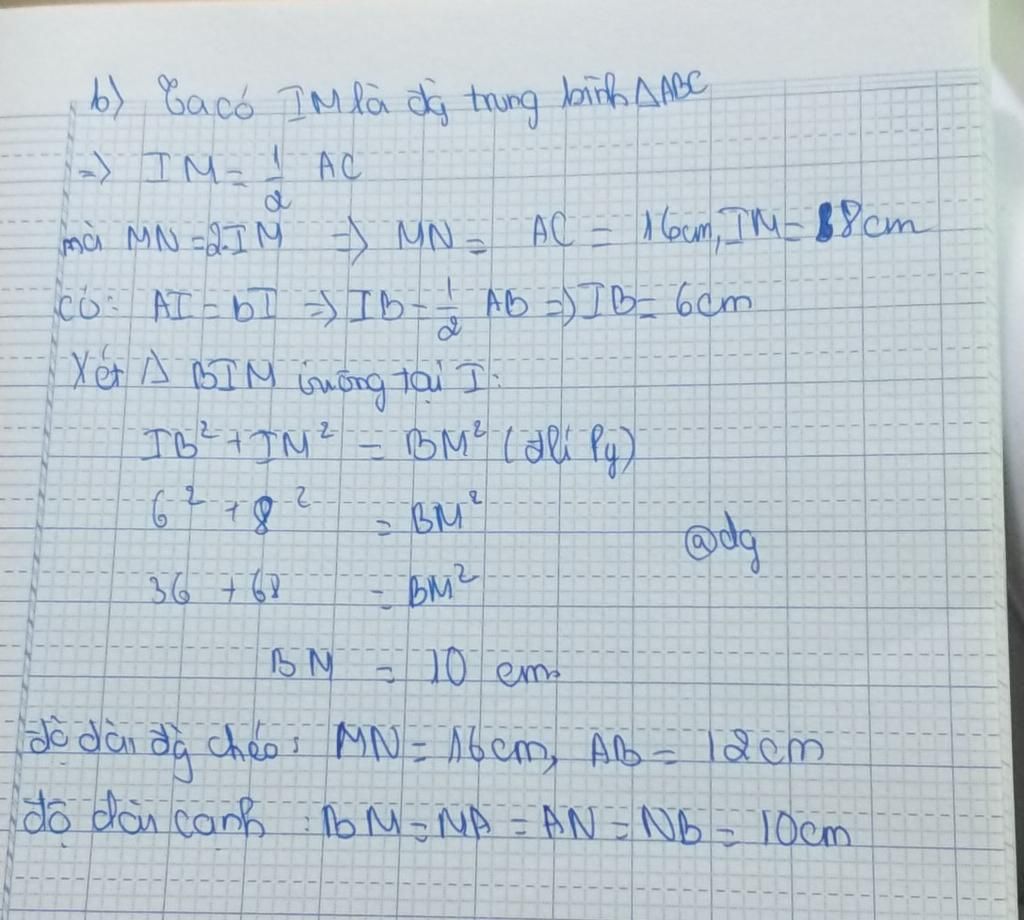 b) Ta có IM là đg trung bình ΔABC
=> IM = 1/2 AC
mà MN = 2.IM => MN = AC = 16cm, IM = 8cm
có: AI = bI => IB = 1/2 AB => IB = 6cm
Xét Δ BIM vuông tại I:
IB² + IM² = BM² (đlí Py)
6² + 8² = BM²
@dg
36 + 68 = BM²
BM = 10 cm
độ dài đg chéo: MN = 16cm, AB = 12cm
độ dài cạnh : BM = MA = AN = NB = 10cm